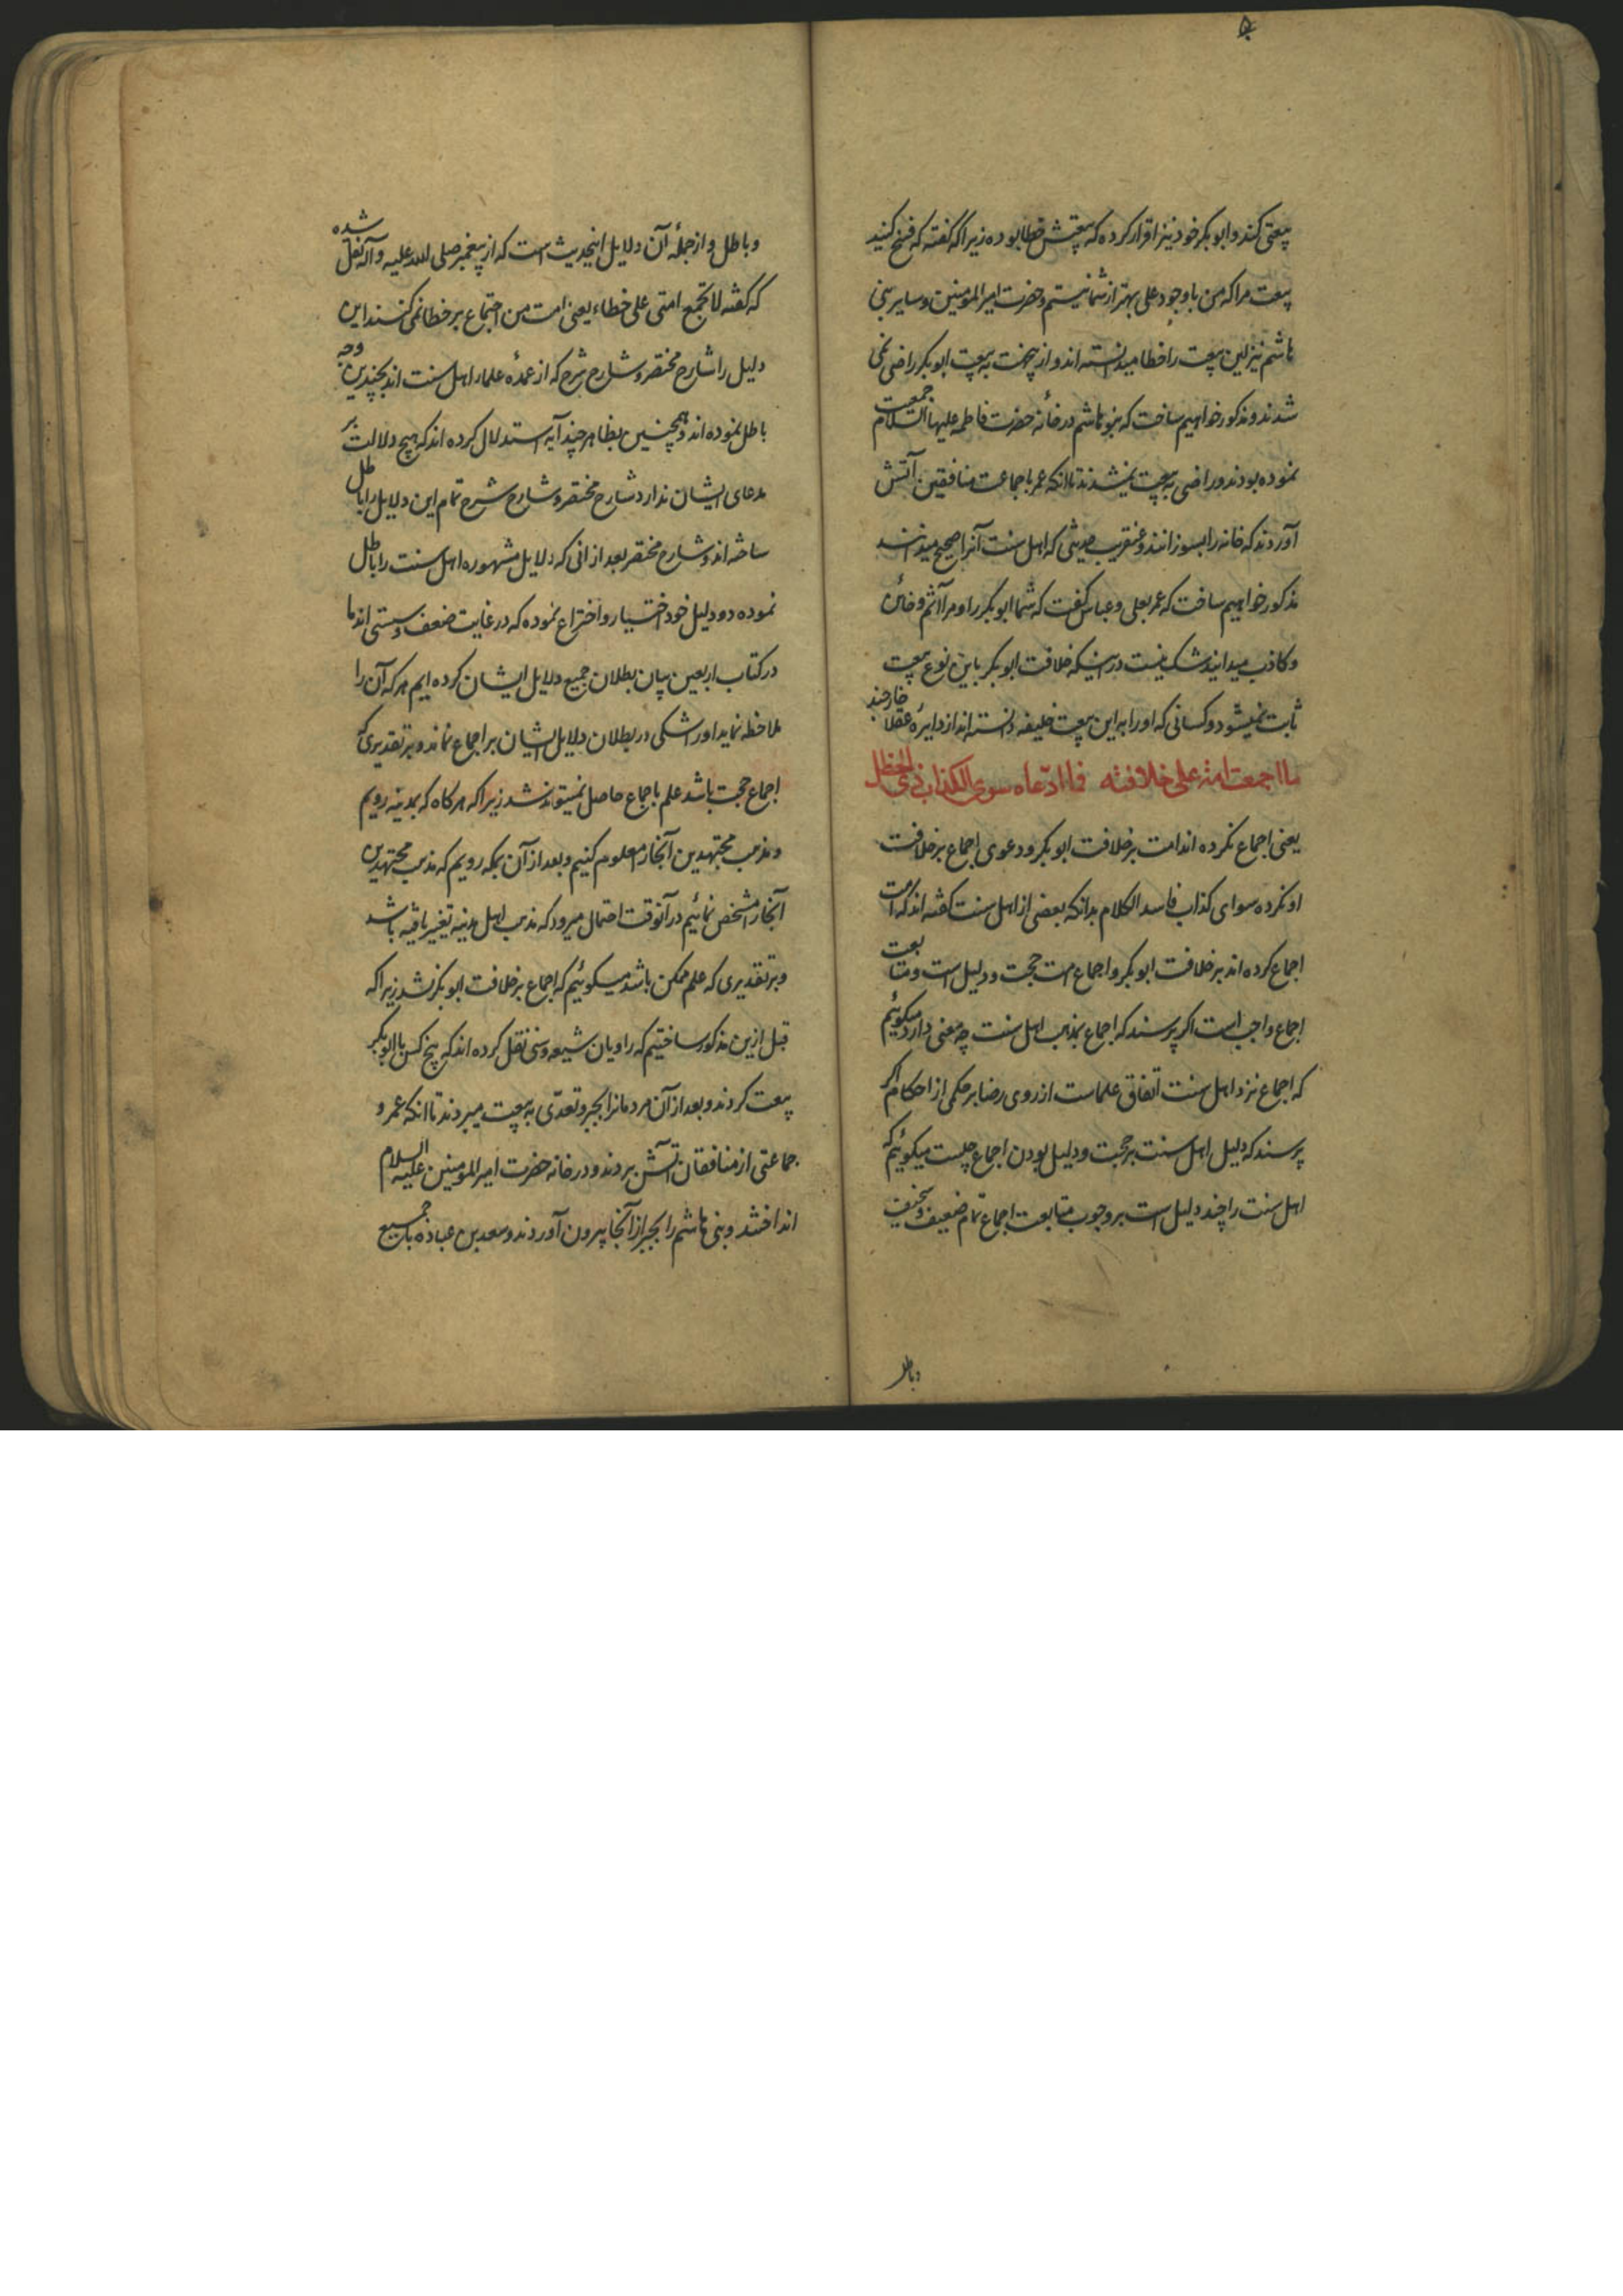 ۵
بیعتی کند و ابوبکر خود نیز اقرار کرده که بیعتش خطا بوده زیرا که گفته که فسخ کنید
بیعت مرا که من با وجود علی بهتر از شما نیستم و حضرت امیرالمومنین و سایر بنی
هاشم نیز این بیعت را خطا میدانسته اند و از اینجهت به بیعت ابوبکر راضی نمی
شدند و مذکور خواهیم ساخت که بنو هاشم در خانه حضرت فاطمه علیها السلام جمعیت
نموده بودند و راضی به بیعت نمیشدند تا انکه عمر با جماعت منافقین آتش
آوردند که خانه را بسوزانند و عنقریب حدیثی که اهل سنت آنرا صحیح میدانند
مذکور خواهیم ساخت که عمر بعلی و عباس گفت که شما ابوبکر را و مرا آثم و خائن
و کاذب میدانید و شک نیست در اینکه خلافت ابوبکر باین نوع بیعت
ثابت نمیشود و کسانی که او را به این بیعت خلیفه دانسته اند از دایره عقلا خارجند
ما اجمعت امة علی خلافته فما ادّعاه سوی الکذاب ذی الخطل
یعنی اجماع نکرده اند امت بر خلافت ابوبکر و دعوی اجماع بر خلافت
او نکرده سوای کذاب فاسد الکلام بدانکه بعضی از اهل سنت گفته اند که امت
اجماع کرده اند بر خلافت ابوبکر و اجماع امت حجت و دلیل است و متابعت
اجماع واجب است اگر پرسند که اجماع بمذهب اهل سنت چه معنی دارد میگوئیم
که اجماع نزد اهل سنت اتفاق علماست از روی رضا بر حکمی از احکام اگر
پرسند که دلیل اهل سنت بر حجت و دلیل بودن اجماع چیست میگوئیم که
اهل سنت را چند دلیل است بر وجوب متابعت اجماع تمام ضعیف و سخیف
و باطل
و باطل و از جملهٔ آن دلایل اینحدیث است که از پیغمبر صلی الله علیه و آله نقل شده
که گفته لا تجتمع امتی علی خطاء یعنی امت من اجتماع بر خطا نمی کنند این
دلیل را شارح مختصر و شارح شرح که از عمدهٔ علماء اهل سنت اند بچندین وجه
باطل نموده اند و همچنین بظاهر چند آیه استدلال کرده اند که هیچ دلالت بر
مدعای ایشان ندارد شارح مختصر و شارح شرح تمام این دلایل را باطل
ساخته اند و شارح مختصر بعد از انی که دلایل مشهوره اهل سنت را باطل
نموده دو دلیل خود اختیار و اختراع نموده که در غایت ضعف و سستی اند ما
در کتاب اربعین بیان بطلان جمیع دلایل ایشان کرده ایم هر که آن را
ملاحظه نماید او را شکی در بطلان دلایل ایشان بر اجماع نماند و بر تقدیری که
اجماع حجت باشد علم باجماع حاصل نمیتواند شد زیرا که هرکاه که بمدینه رویم
و مذهب مجتهدین آنجا را معلوم کنیم و بعد از آن بمکه رویم که مذهب مجتهدین
آنجا را مشخص نمائیم در آنوقت احتمال میرود که مذهب اهل مدینه تغییر یافته باشد
و بر تقدیری که علم ممکن باشد میگوئیم که اجماع بر خلافت ابوبکر نشد زیرا که
قبل ازین مذکور ساختیم که راویان شیعه و سنی نقل کرده اند که پنج کس با ابوبکر
بیعت کردند و بعد از آن مردمانرا بجبر و تعدّی به بیعت میبردند تا انکه عمر و
جماعتی از منافقان آتش بردند و در خانه حضرت امیرالمومنین علیه السلام
انداختند و بنی هاشم را بجبر از آنجا بیرون آوردند و سعد بن عباده با جمیع